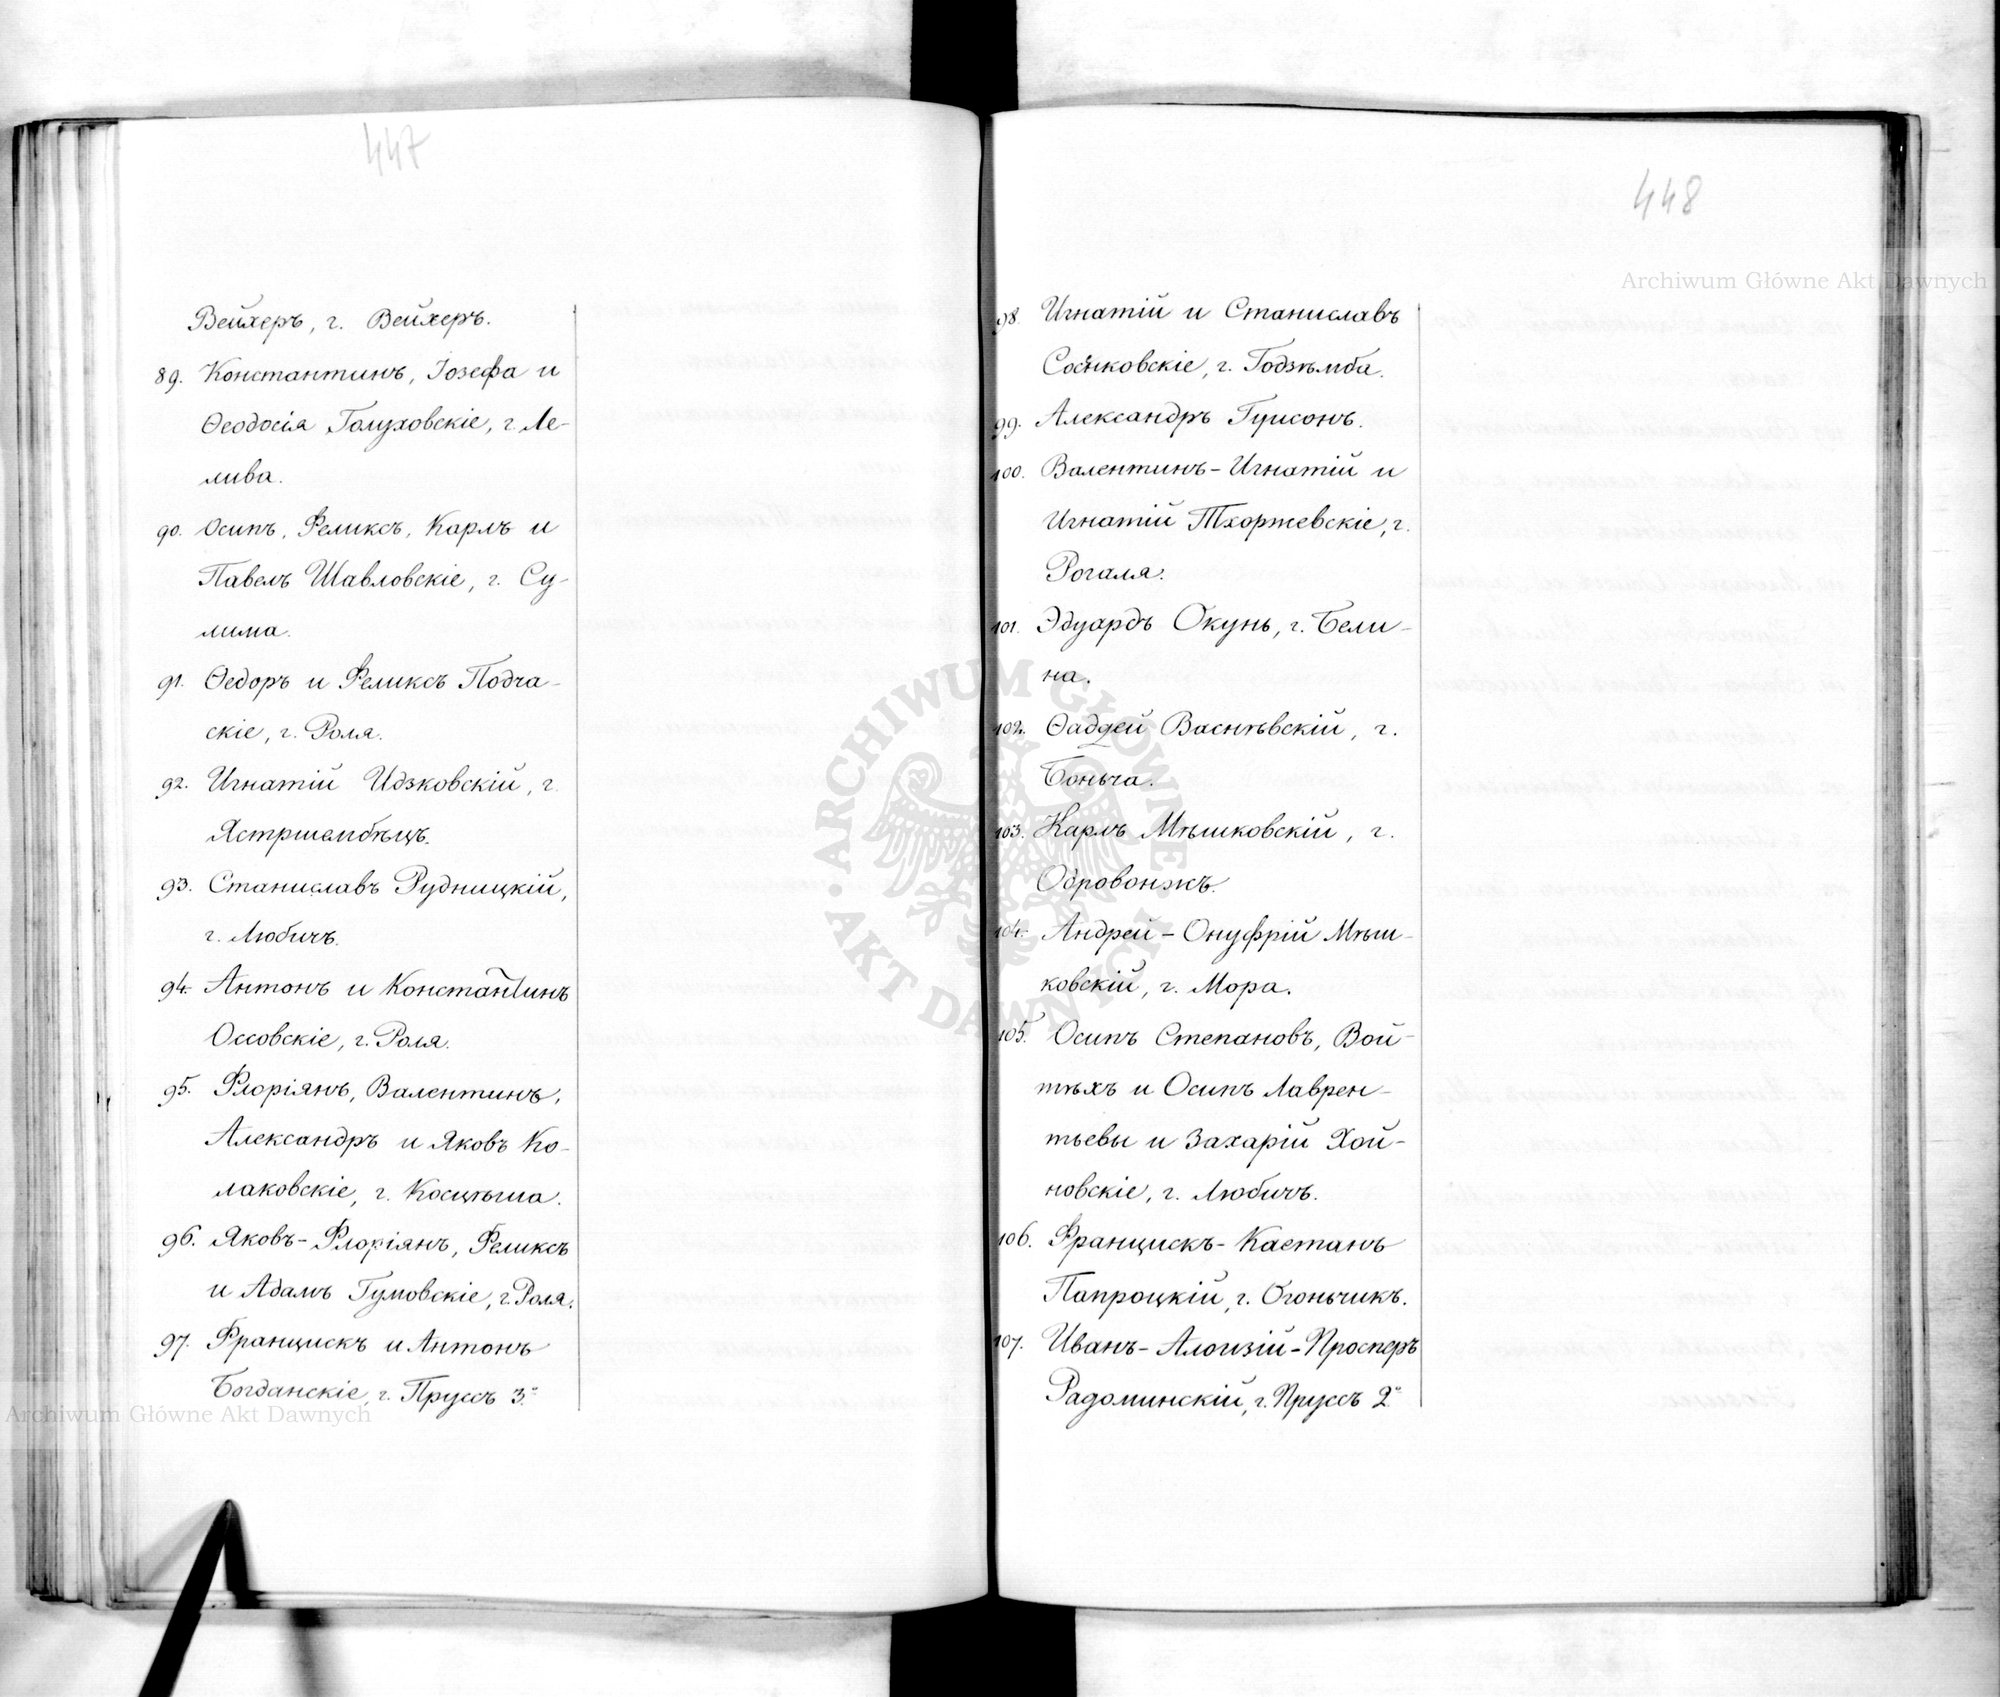 447
Вейхеръ, г. Вейхеръ.
89. Константинъ, Іозефа и
Ѳеодосія Голуховскіе, г. Ле-
лива.
90. Осипъ, Феликсъ, Карлъ и
Павелъ Шавловскіе, г. Су-
лима.
91. Ѳедоръ и Феликсъ Подча-
скіе, г. Роля.
92. Игнатій Идзковскій, г.
Ястршембѣцъ.
93. Станиславъ Рудницкій,
г. Любичъ.
94. Антонъ и Константинъ
Оссовскіе, г. Роля.
95. Флоріянъ, Валентинъ,
Александръ и Яковъ Ко-
лаковскіе, г. Косцѣша.
96. Яковъ-Флоріянъ, Феликсъ
и Адамъ Гумовскіе, г. Роля.
97. Францискъ и Антонъ
Богданскіе, г. Пруссъ 3.
448
98. Игнатій и Станиславъ
Соснковскіе, г. Годзѣмба.
99. Александръ Гуисонъ.
100. Валентинъ-Игнатій и
Игнатій Тхоржевскіе, г.
Рогаля.
101. Эдуардъ Окунь, г. Бели-
на.
102. Ѳаддей Воснѣвскій, г.
Боньча.
103. Карлъ Мѣшковскій, г.
Одровонжъ.
104. Андрей-Онуфрій Мѣш-
ковскій, г. Мора.
105. Осипъ Степановъ, Вой-
тѣхъ и Осипъ Лаврен-
тьевы и Захарій Хой-
новскіе, г. Любичъ.
106. Францискъ-Каетанъ
Папроцкій, г. Огоньчикъ.
107. Иванъ-Алоизій-Просперъ
Радоминскій, г. Пруссъ 2
Archiwum Główne Akt Dawnych
Archiwum Główne Akt Dawnych
ARCHIWUM GŁÓWNE
AKT DAWNYCH